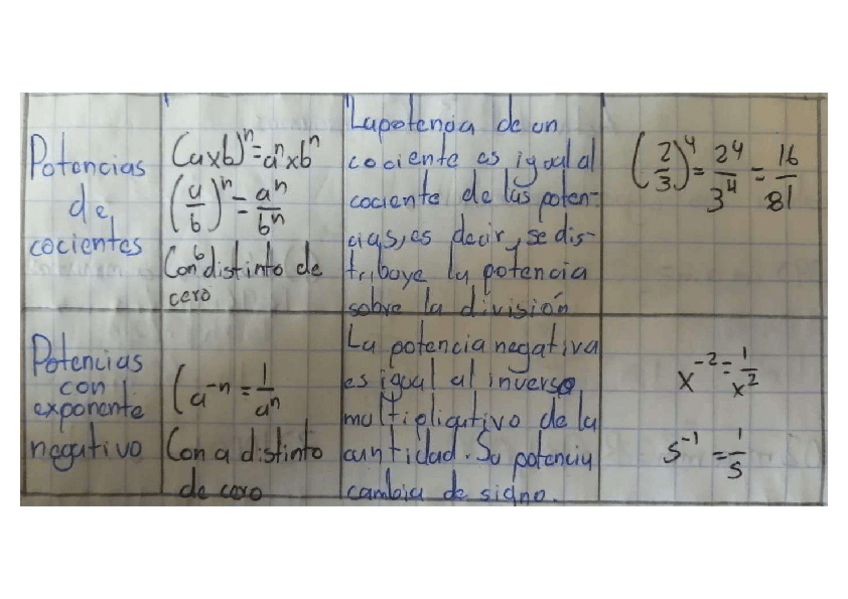 Potencias
de
cocientes
(axb)ⁿ=aⁿxbⁿ
(a/b)ⁿ = aⁿ/bⁿ
Con b distinto de
cero
La potencia de un
cociente es igual al
cociente de las poten-
cias, es decir, se dis-
tribuye la potencia
sobre la división
(2/3)⁴ = 2⁴/3⁴ = 16/81
Potencias
con
exponente
negativo
(a⁻ⁿ = 1/aⁿ
Con a distinto
de cero
La potencia negativa
es igual al inverso
multiplicativo de la
cantidad. Su potencia
cambia de signo.
x⁻² = 1/x²
5⁻¹ = 1/5